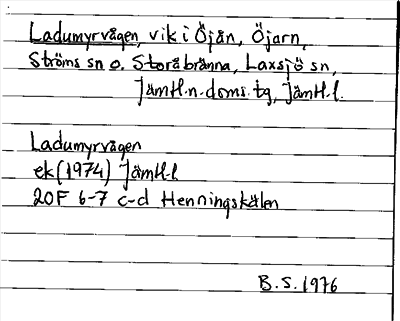 Ladumyrvågen, vik i Öjån, Öjarn,
Ströms sn o. Storåbränna, Laxsjö sn,
Jämtl.n.doms.tg, Jämtl.l.
Ladumyrvågen
ek (1974) Jämtl.l
20F 6-7 c-d Henningskälen
B.S. 1976